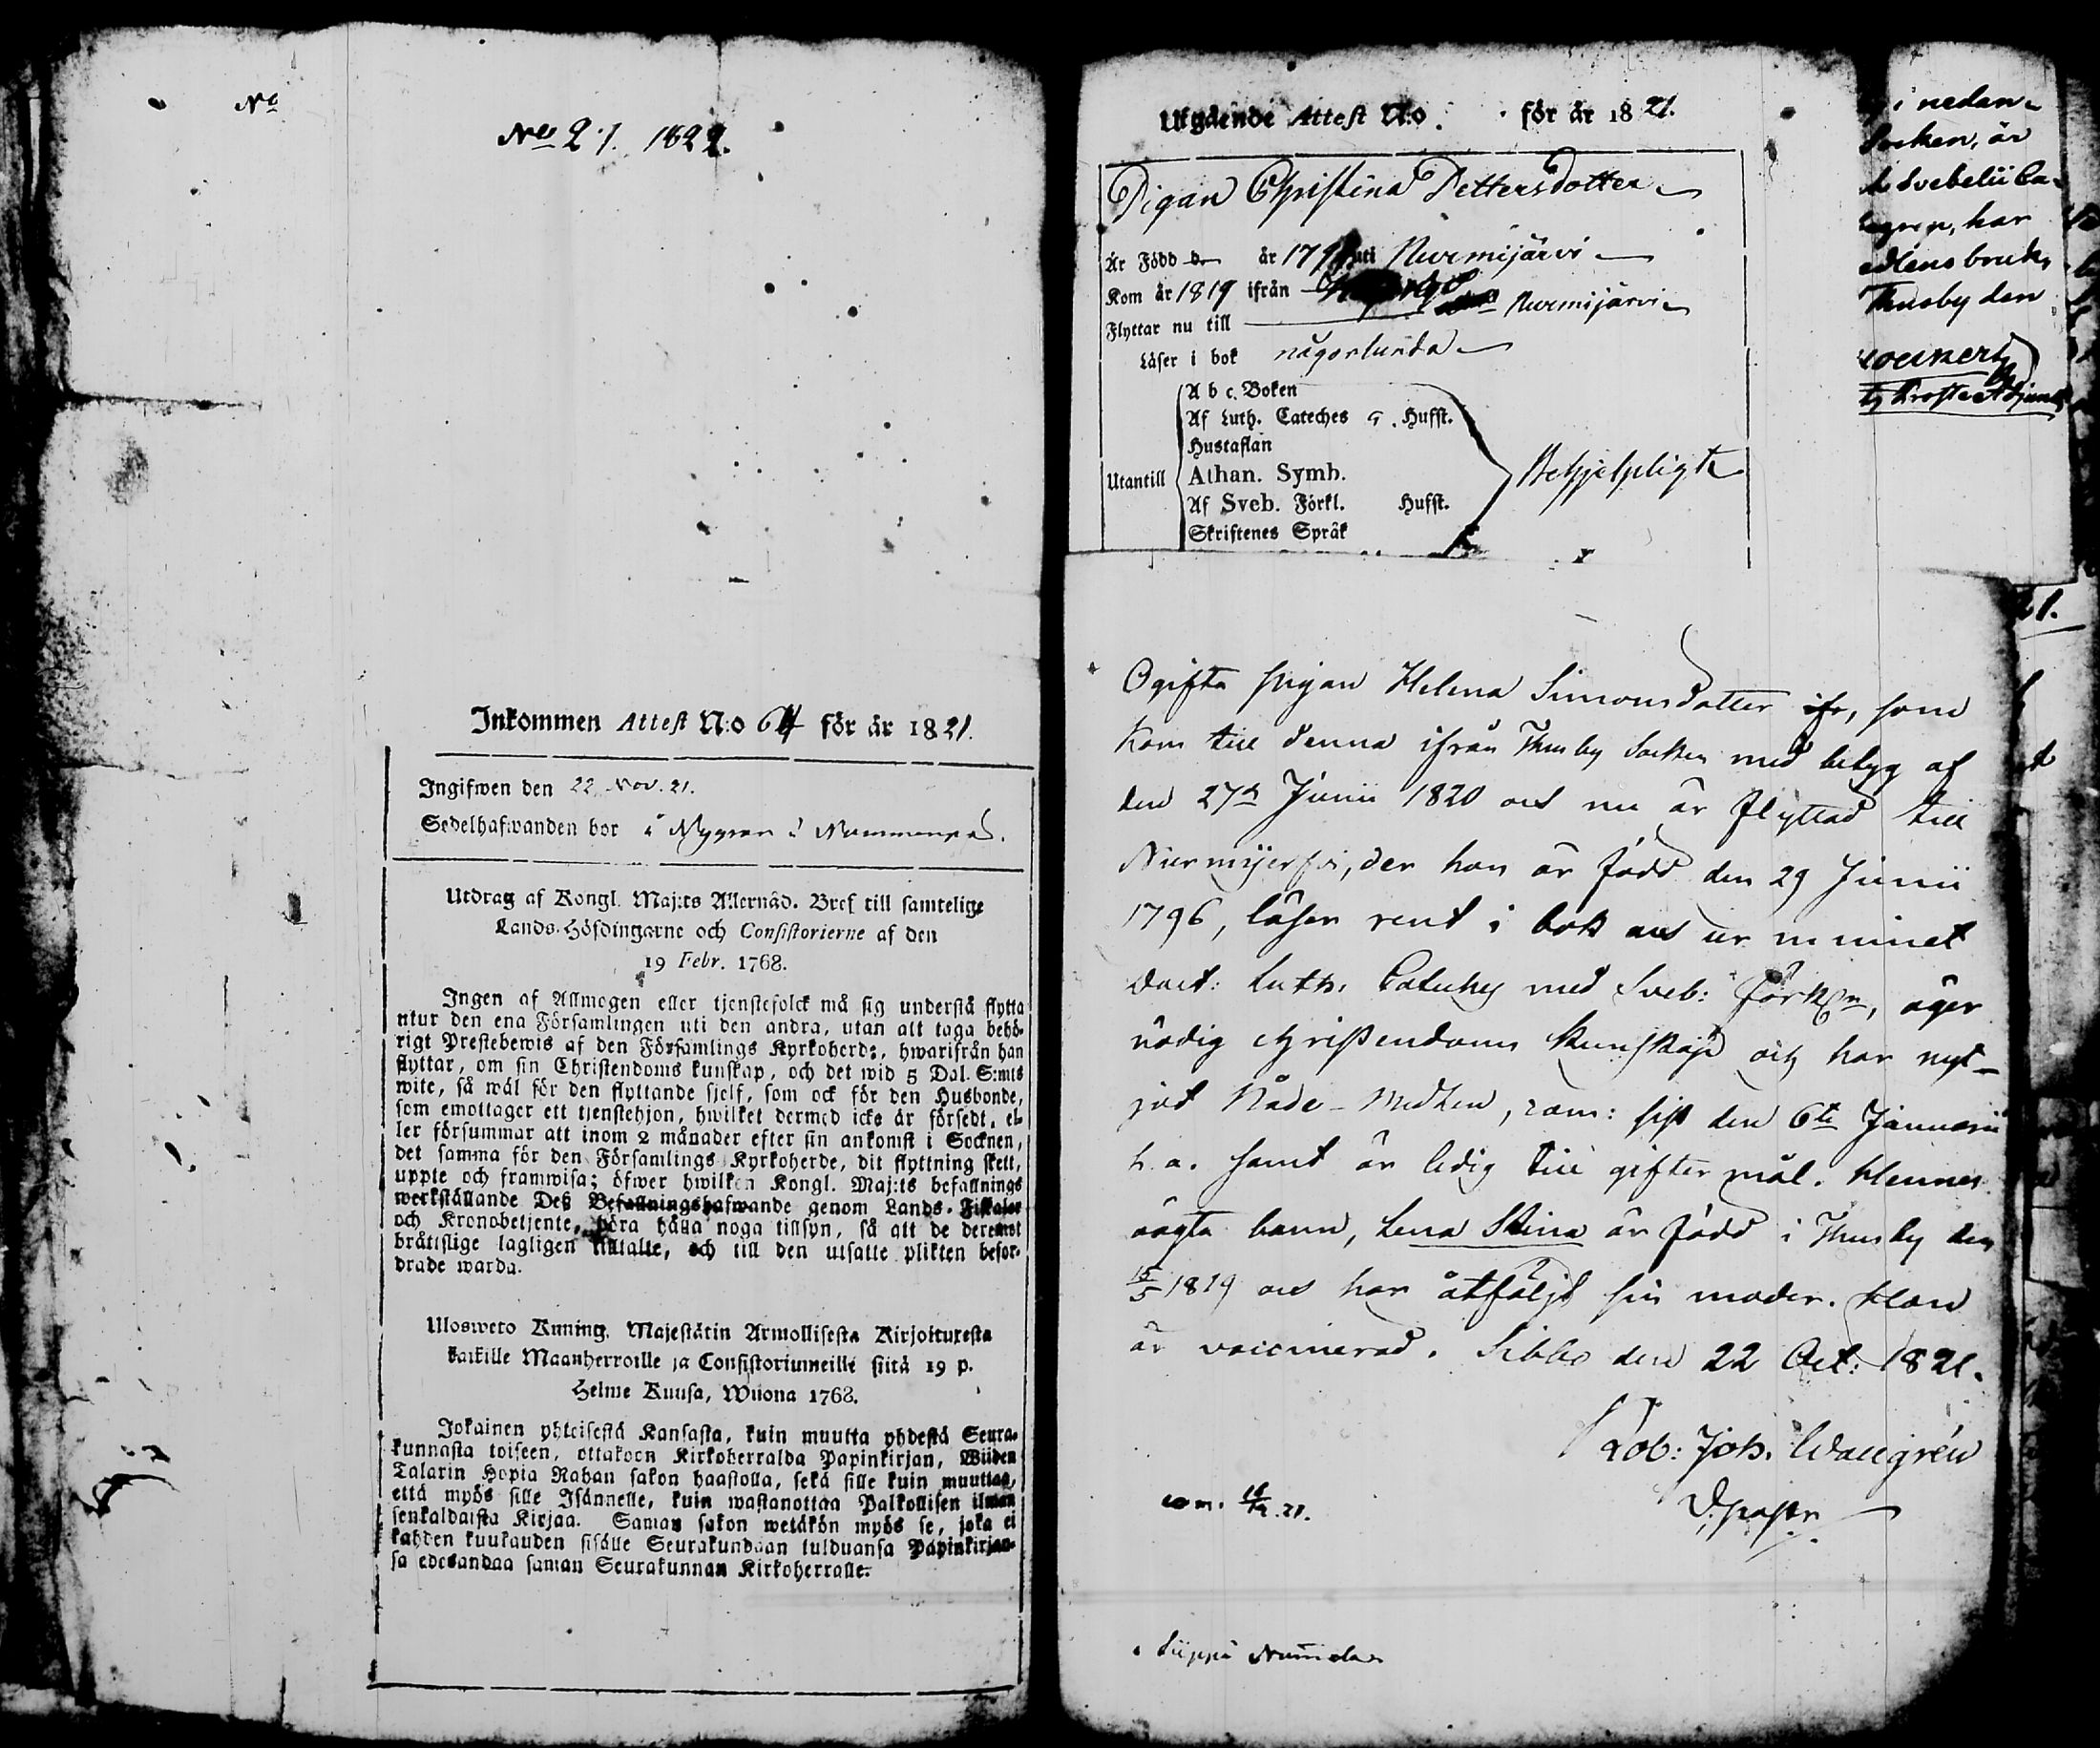 No
No 21. 1822.
Inkommen Attest N:o 64 för år 1821.
Ingifwen den 22 Nov. 21.
Sedelhafwanden bor i Nygren i Nummenpä.
Utdrag af Kongl. Maj:ts Allernåd. Bref till samtelige
Lands-Höfdingarne och Consistorierne af den
19 Febr. 1768.
Ingen af Allmogen eller tjenstefolck må sig understå flytta
utur den ena Församlingen uti den andra, utan att taga behö-
rigt Prestebewis af den Församlings Kyrkoherde, hwarifrån han
flyttar, om sin Christendoms kunskap, och det wid 5 Dal. S:mts
wite, så wäl för den flyttande sjelf, som ock för den Husbonde,
som emottager ett tjenstehjon, hwilket dermed icke är försedt, el-
ler försummar att inom 2 månader efter sin ankomst i Socknen,
det samma för den Församlings Kyrkoherde, dit flyttning skett,
uppte och framwisa; öfwer hwilken Kongl. Maj:ts befallnings
werkställande Deß Befallningshafwande genom Lands-Fiskaler
och Kronobetjente, böra hålla noga tillsyn, så att de deremot
bråttslige lagligen tilltalte, och till den utsatte plikten befor-
drade warda.
Ulosweto Kuning. Majestätin Armollisesta Kirjoituxesta
kaikille Maanherroille ja Consistoriumeille siitä 19 p.
Helme Kuusa, Wuona 1768.
Jokainen yhteisestä Kansasta, kuin muutta yhdestä Seura-
kunnasta toiseen, ottakoon Kirkoherralda Papinkirjan, Wiiden
Talarin Hopia Rahan sakon haastolla, sekä sille kuin muuttaa,
että myös sille Isännelle, kuin wastanottaa Palkollisen ilman
senkaldaista Kirjaa. Saman sakon wetäkön myös se, joka ei
kahden kuukauden sisälle Seurakundaan tulduansa Papinkirjan-
sa edesandaa saman Seurakunnan Kirkoherralle.
Utgående Attest N:o . för år 1821.
Pigan Christina Pettersdotter
Är Född d. år 179 uti Nurmijärvi
Kom år 1819 ifrån
Flyttar nu till Nurmijärvi
Läser i bok någorlunda
A b c. Boken
Af Luth. Cateches 5. Hufst.
Hustaflan
Utantill Athan. Symb. Behjelpligt
Af Sveb. Förkl. Hufst.
Skriftenes Språk
i nedan-
Socken, är
Svebelii Ca-
har
bruk,
Thusby den
Adjunct
21.
Ogifta pigan Helena Simonsdotter ifr, som
kom till denna ifrån Thusby Socken med betyg af
den 27de Junii 1820 och nu är flyttad till
Nurmijerfvi, der hon är född den 29 Junii
1796, läser rent i bok och ur minnet
Doct: Luth: Cateches med Sveb: Förkl:n, äger
nödig christendoms kunskap och har nyt-
jat Nåde-Medlen, sist den 6te Januarii
h. a. samt är ledig till giftermål. Hennes
oägta barn, Lena Stina är född i Thusby den
15/5 1819 och har åtföljt sin moder. Hon
är vaccinerad. Sibbo den 22 Oct: 1821.
Rob: Joh. Wallgrén
V. Pastor
21.